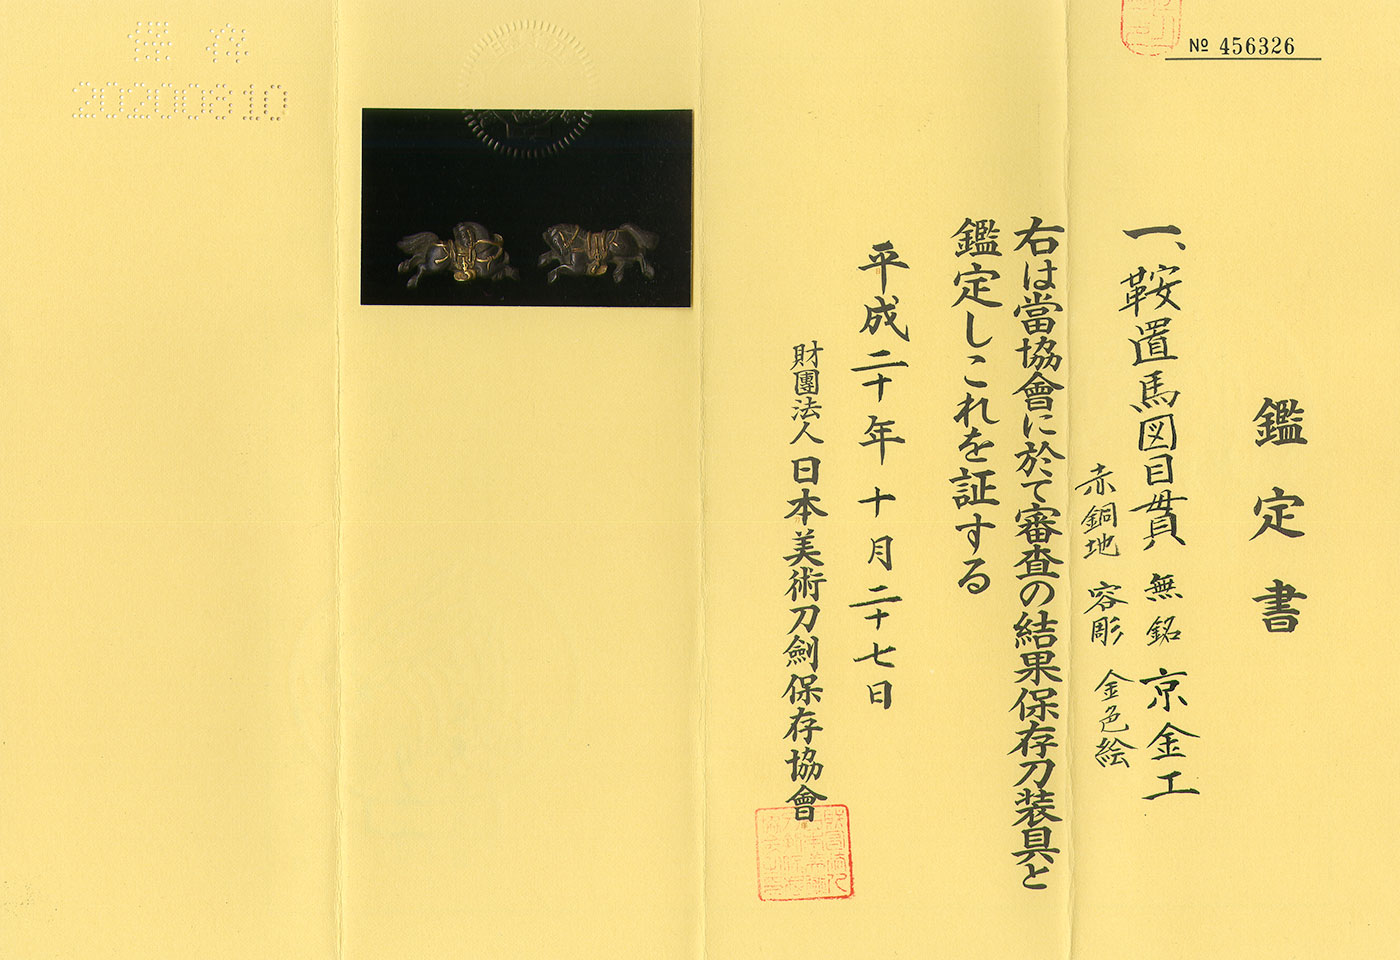 № 456326
鑑定書
一、鞍置馬図目貫 無銘 京金工
赤銅地 容彫 金色絵
右は當協會に於て審査の結果保存刀装具と
鑑定しこれを証する
平成二十年十月二十七日
財團法人日本美術刀劍保存協會
保存
20200810